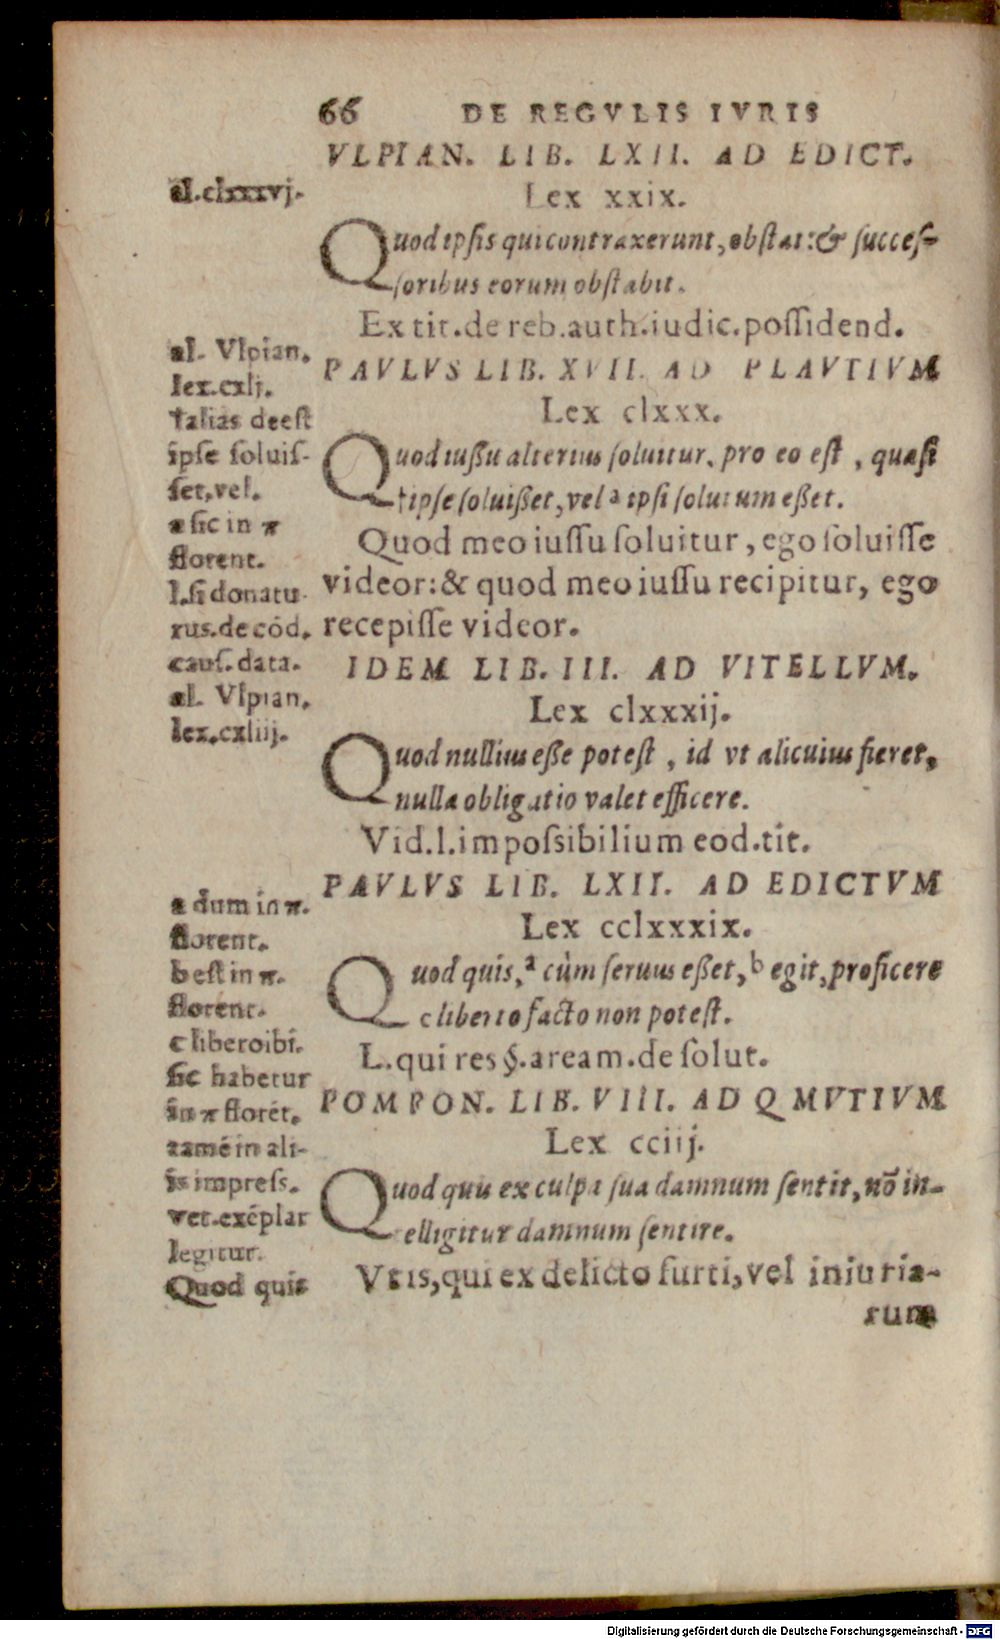 66 DE REGVLIS IVRIS
VLPIAN. LIB. LXII. AD EDICT.
al.clxxxvj.
Lex xxix.
Quod ipsis qui contraxerunt, obstat: & succeſ-
ſoribus eorum obſtabit.
Ex tit.de reb.auth.iudic.poſſidend.
al. Vlpian.
lex.cxlj.
†alias deeſt
ipſe ſoluiſ-
ſet,vel.
a ſic in π
florent.
l.ſi donatu-
rus.de cōd.
cauſ.data.
al. Vlpian.
lex.cxliij.
PAVLVS LIB. XVII. AD PLAVTIVM
Lex clxxx.
Quod iußu alterius ſoluitur, pro eo eſt, quaſi
†ipſe ſoluißet, vel a ipſi ſolutum eßet.
Quod meo iuſſu ſoluitur, ego ſoluiſſe
videor: & quod meo iuſſu recipitur, ego
recepiſſe videor.
IDEM LIB. III. AD VITELLVM.
Lex clxxxij.
Quod nullius eße poteſt, id vt alicuius fieret,
nulla obligatio valet efficere.
Vid.l.impoſsibilium eod.tit.
PAVLVS LIB. LXII. AD EDICTVM
Lex cclxxxix.
Quod quis, a cùm ſeruus eßet, b egit, proficere
c liberto facto non poteſt.
L.qui res §.aream.de ſolut.
a dum in π.
florent.
b eſt in π.
florent.
c liberoibi.
ſic habetur
in π florēt.
tamē in ali-
is impreſſ.
vet.exēplar
legitur.
Quod quis
POMPON. LIB. VIII. AD Q MVTIVM
Lex cciij.
Quod quis ex culpa ſua damnum ſentit, nō in-
elligitur damnum ſentire.
Vt is, qui ex delicto furti, vel iniuria-
rum
Digitalisierung gefördert durch die Deutsche Forschungsgemeinschaft - DFG